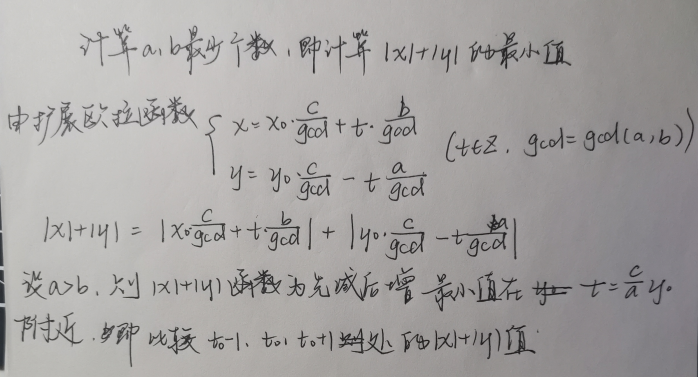 计算a,b最少个数,即计算|x|+|y|的最小值
由扩展欧拉函数 { x=x₀·c/gcd+t·b/gcd
y=y₀·c/gcd-t a/gcd (t∈Z, gcd=gcd(a,b))
|x|+|y|=|x₀·c/gcd+t·b/gcd|+|y₀·c/gcd-t a/gcd|
设a>b,则|x|+|y|函数为先减后增 最小值在 t=c/a y₀
附近,即比较t₀-1,t₀,t₀+1处的|x|+|y|值